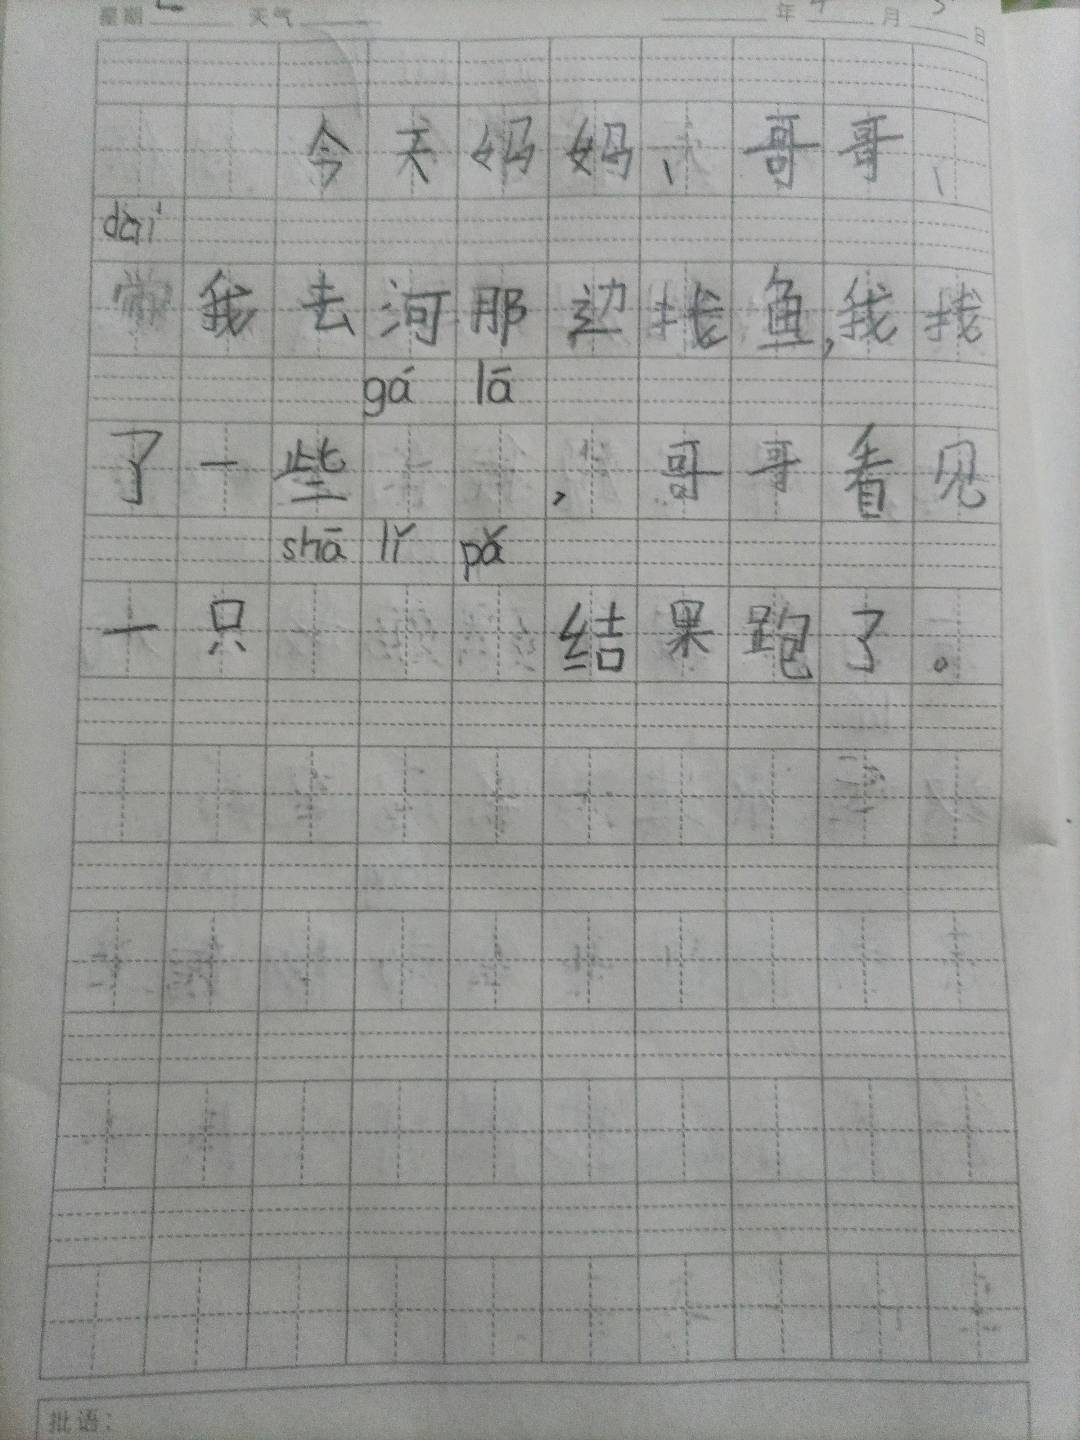 星期 天气 年 4 月 5 日
今天妈妈、哥哥、
dài
我去河那边找鱼,我找
gá lā
了一些,哥哥看见
shā lǐ pǎ
一只结果跑了。
批语: